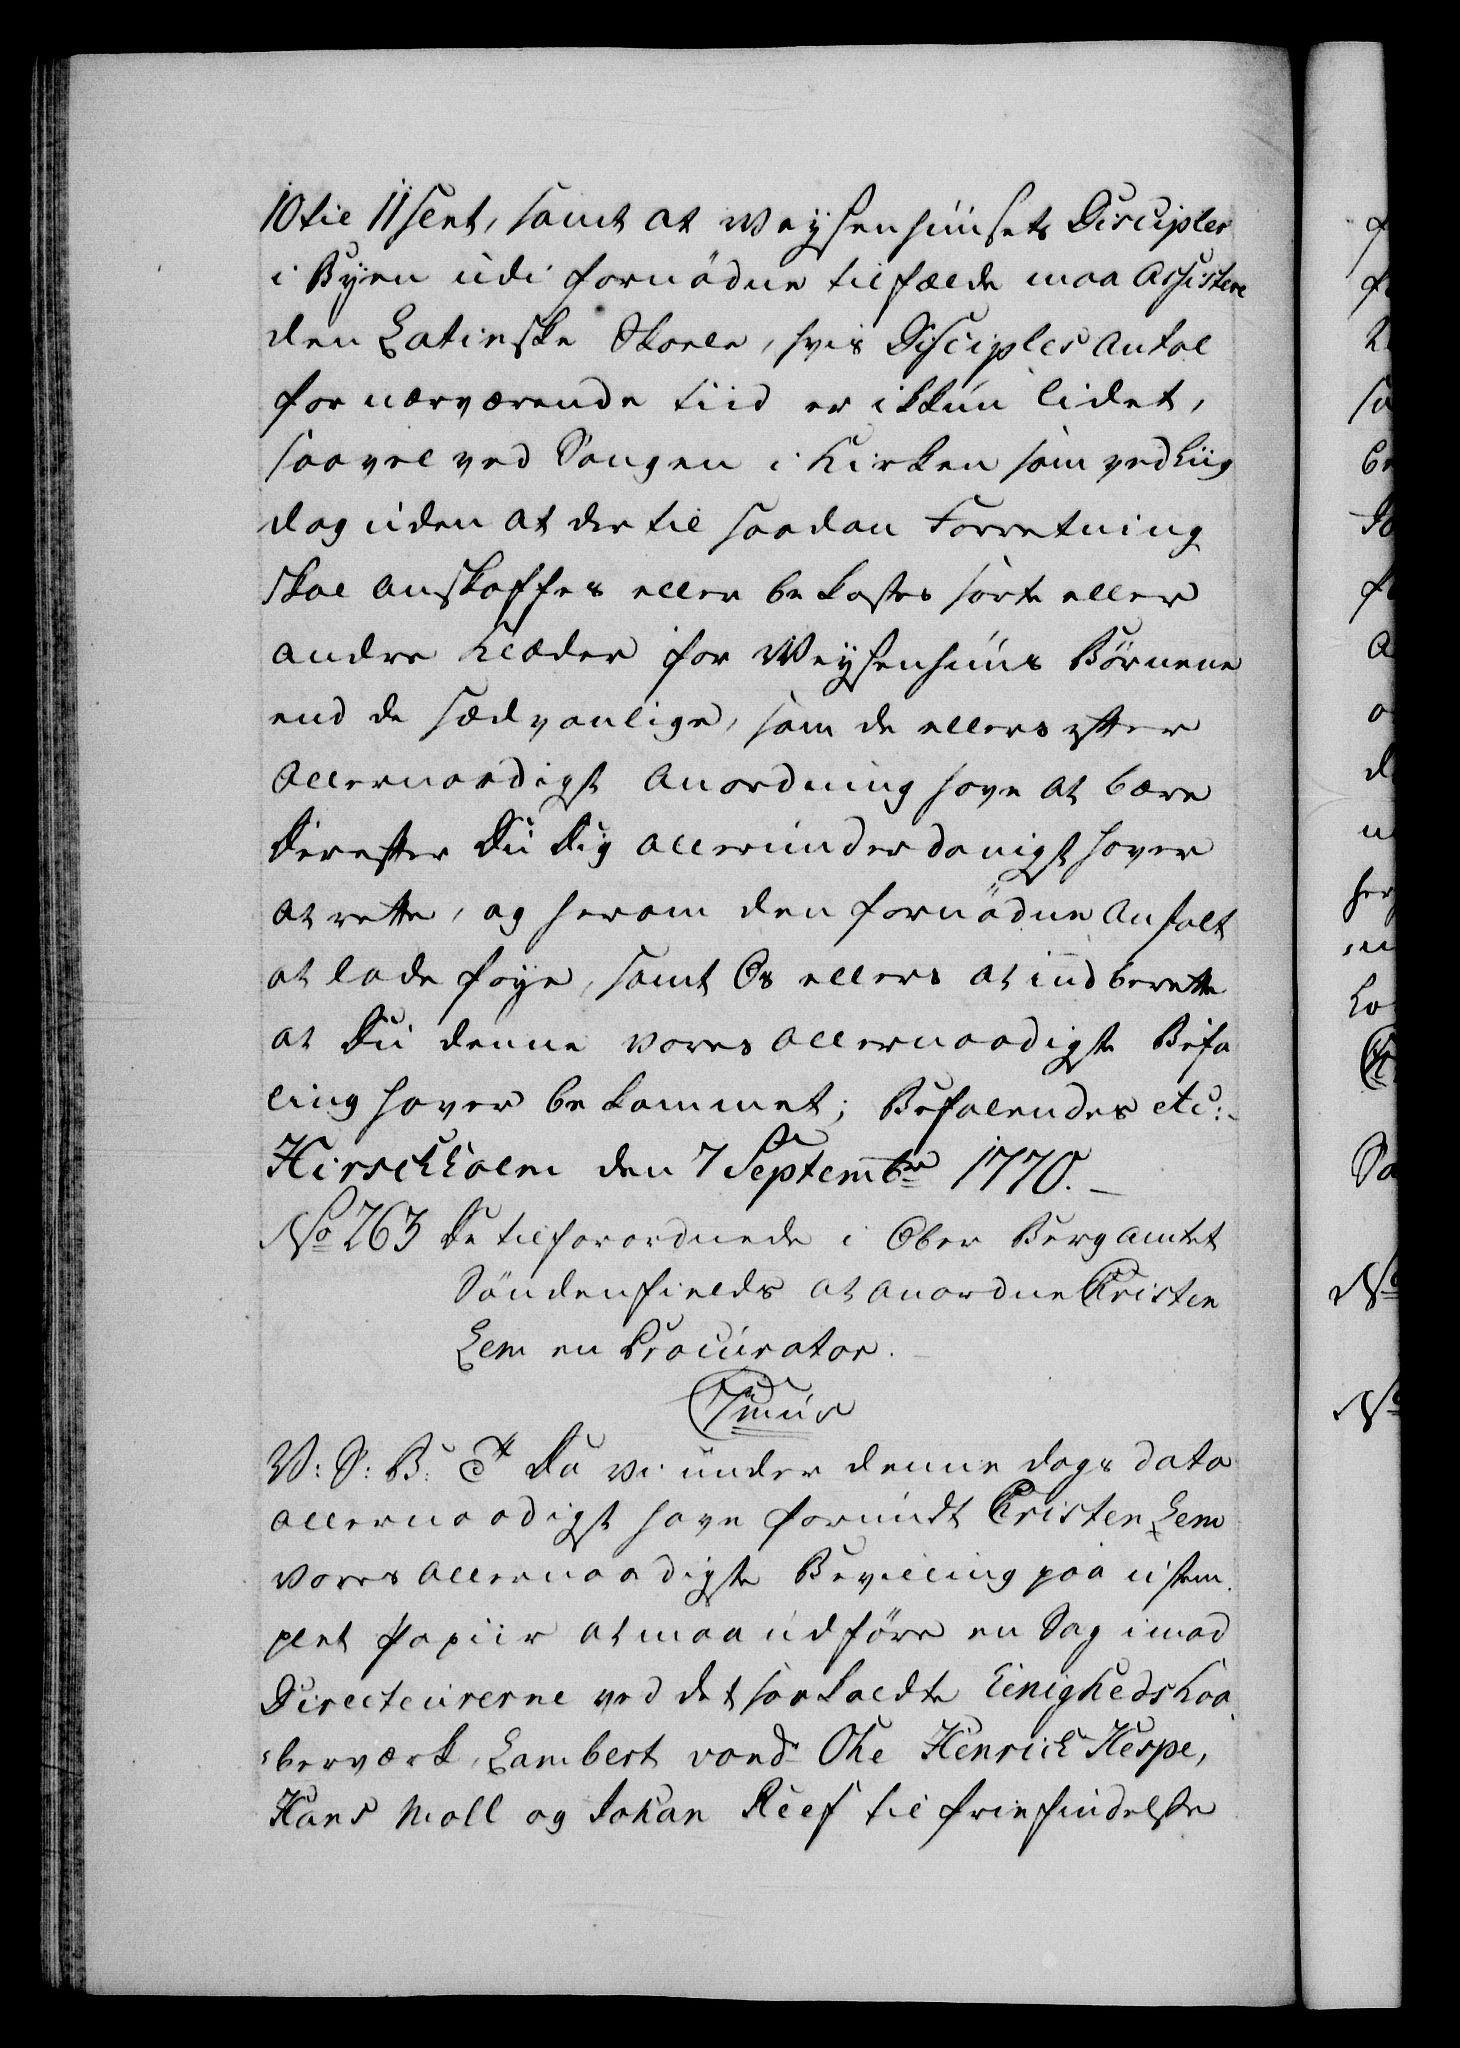 10 til 11 slet, samt at Weysenhuusets Discipler
i Byen udi fornødne tilfælde maa assistere
den Latinske Skoele, hvis Disciples Antal
for nærværende tiid er ikkun lidet,
saavel ved Sangen i Kirken som ved Liig
dog uden at der til saadan Forretning
skal anskaffes eller bekostes sorte eller
andre Klæder for Weysenhuus Børnene
end de sædvanlige, som de ellers efter
allernaadigst Anordning have at bære
Derefter Du Dig allerunderdanigst haver
at rette, og herom den fornødne Anstalt
at lade føye, samt Os ellers at indberette
at Du denne vores allernaadigste Befa
ling haver bekommet; Befalendes etc:
Hirschholm den 7 Septembr 1770.
No 263 De tilforordnede i Ober Berg Amtet
Søndenfields at anordne Christen
Lem en Procurator.
C7mus
V: S: B: Da vi under denne dags dato
allernaadigst have forundt Christen Lem
vores allernaadigste Bevilling paa ustem
plet Papiir at maa udføre en Sag imod
Directeurerne ved det saa kaldte Einigheds Kaa
berværk, Lambert vond Ohe Henrich Hespe,
Hans Moll og Johan Reef til frie findelse